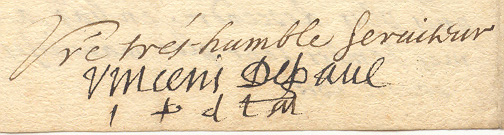 Vre trés humble seruiteur
Vincent Depaul
i p d l m